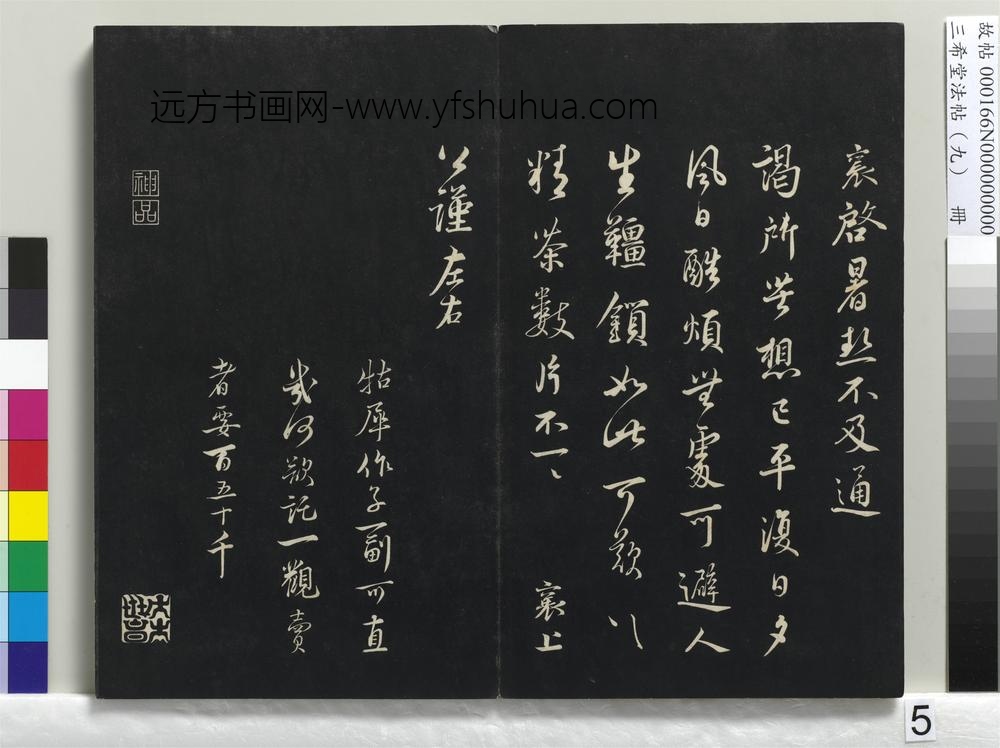 远方书画网-www.yfshuhua.com
襄啓暑熱不及通
謁所苦想已平復日夕
風日酷煩無處可避人
生韁鎖如此可歎以
精茶數片不一一 襄上
公謹左右
牯犀作子一副可直
幾何欲託一觀賣
者要百五十千
神品
故帖 000166N000000000
三希堂法帖(九) 冊
5